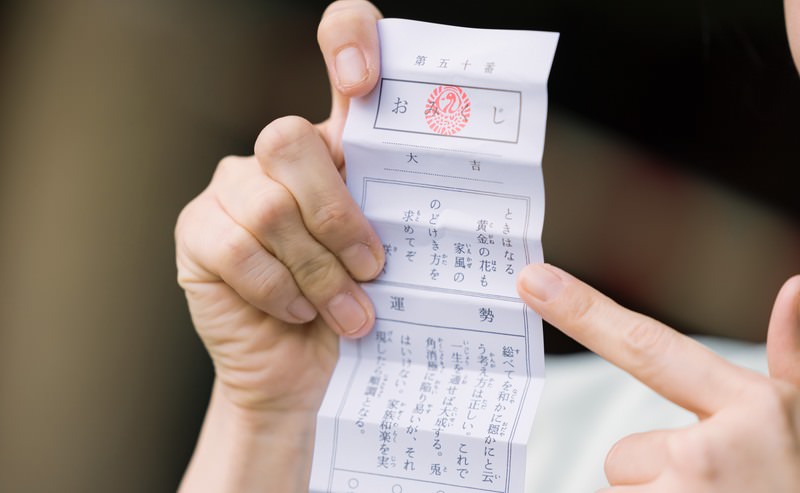 第五十番
おみくじ
大吉
ときはなる
黄金の花も
家風の
のどけき方を
求めてぞ
咲く
運勢
総べてを和かに穏かにと云
う考え方は正しい。これで
一生を通せば大成する。兎
角消極に陥り易いが、それ
はいけない。家族和楽を実
現したら順調となる。